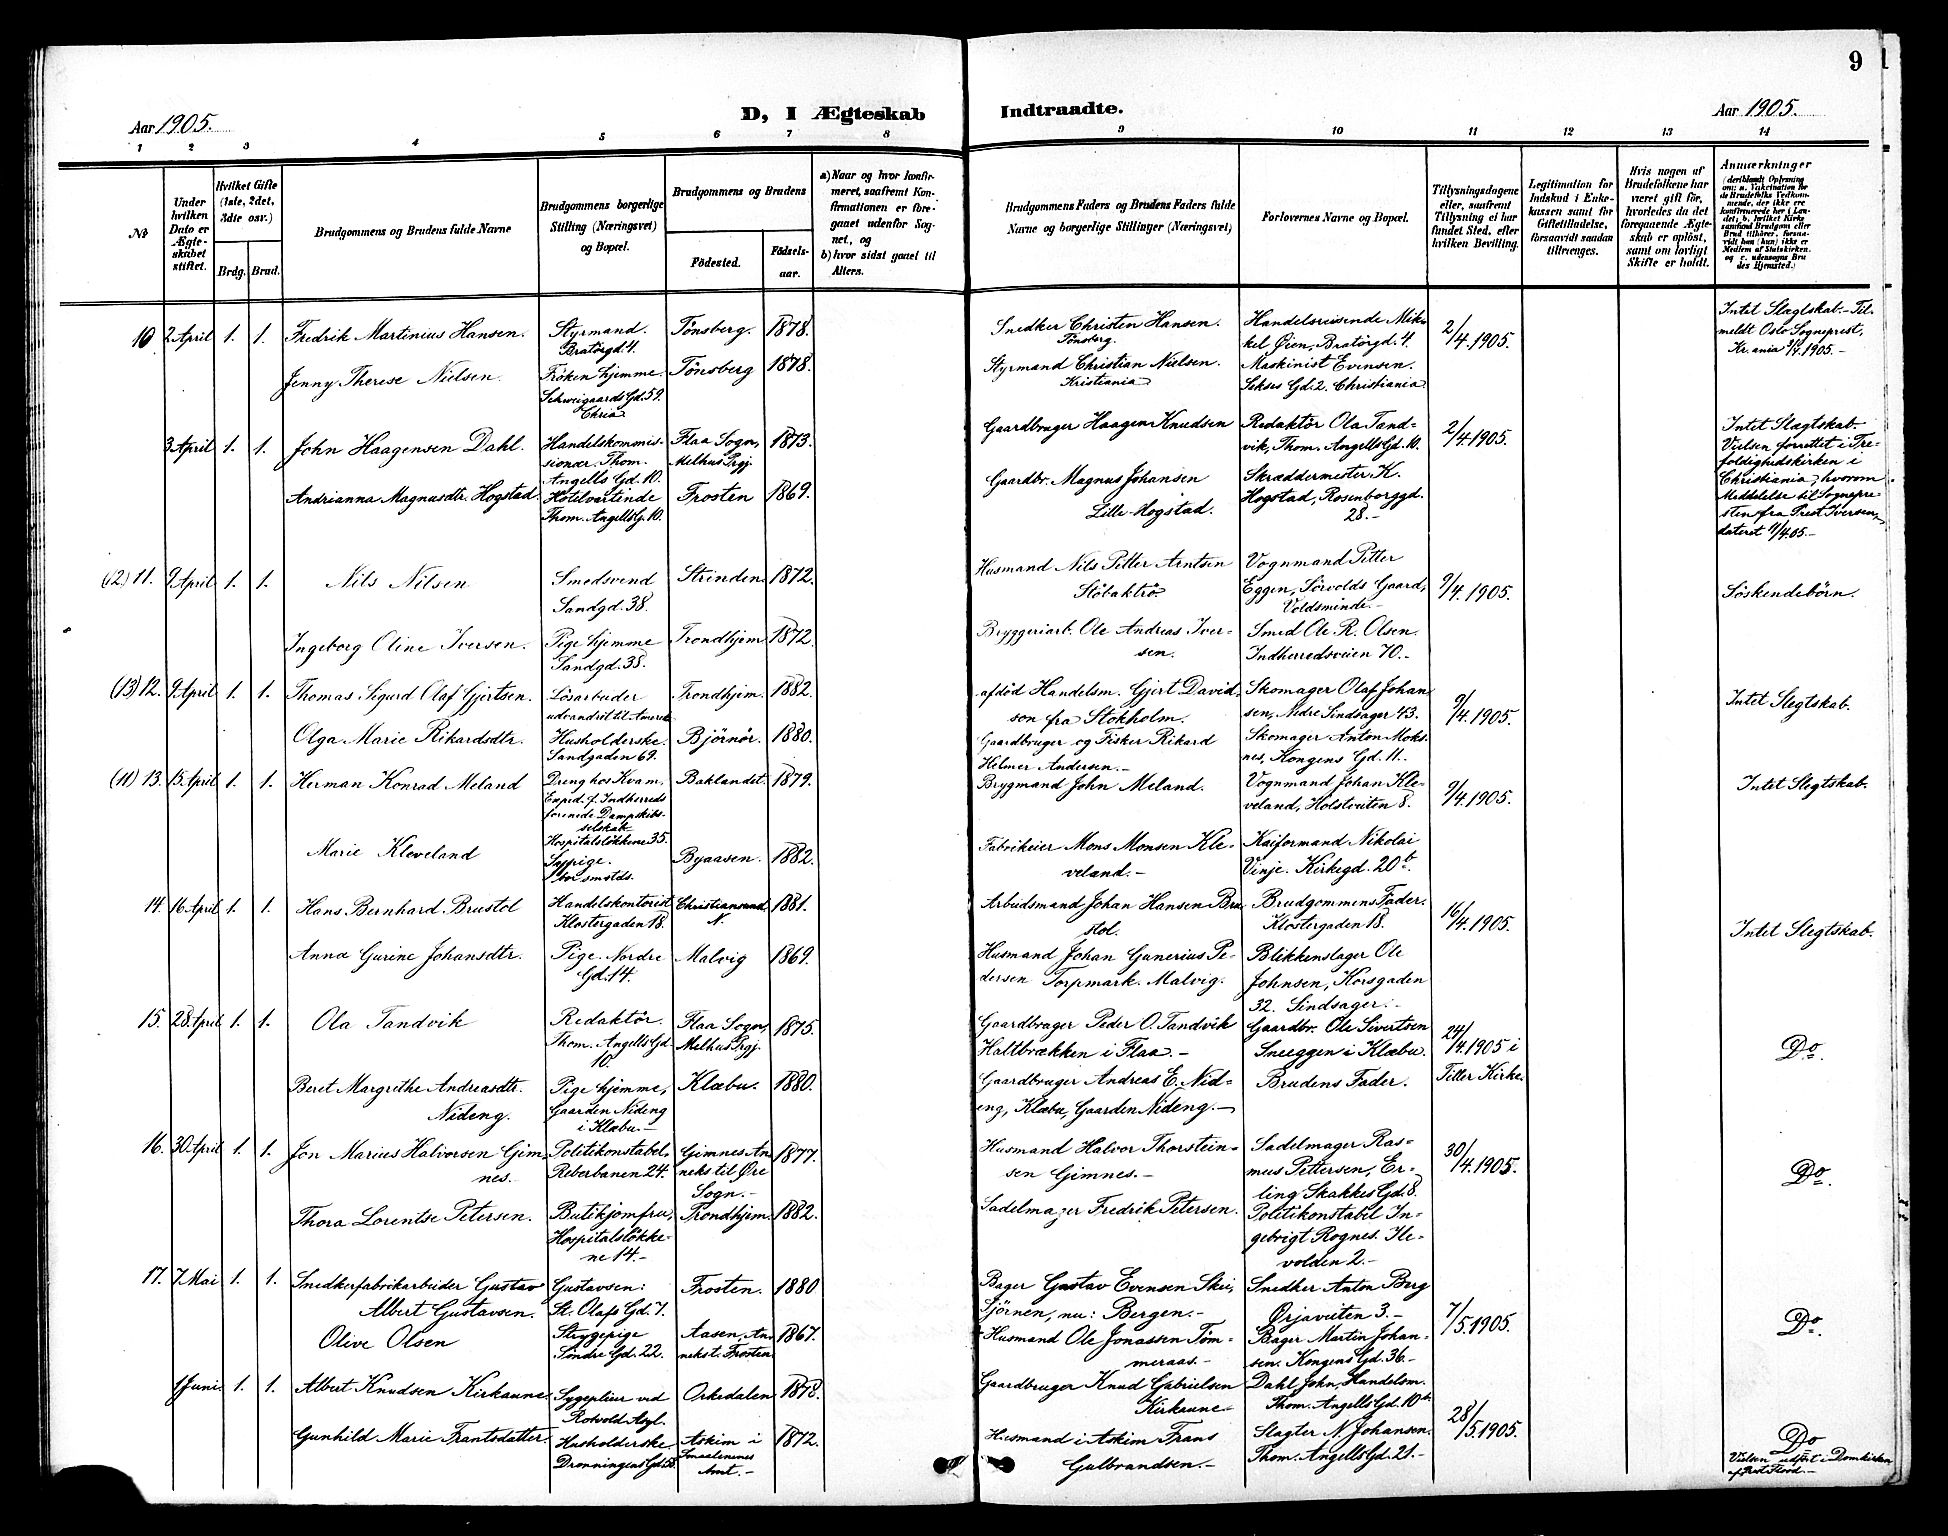 9
Aar 1905.
D, I Ægteskab
Indtraadte.
Aar 1905.
1 2 3 4 5 6 7 8 9 10 11 12 13 14
No
Under hvilken Dato er Ægteskabet stiftet.
Hvilket Gifte (1ste, 2det, 3die osv.)
Brdg. Brud.
Brudgommens og Brudens fulde Navne
Brudgommens borgerlige Stilling (Næringsvei) og Bopæl.
Brudgommens og Brudens
Fødested.
Fødselsaar.
a) Naar og hvor konfirmeret, saafremt Konfirmationen er foregaaet udenfor Sognet, og
b) hvor sidst gaaet til Alters.
Brudgommens Faders og Brudens Faders fulde Navne og borgerlige Stillinger (Næringsvei)
Forlovernes Navne og Bopæl.
Tillysningsdagene eller, saafremt Tillysning ei har fundet Sted, efter hvilken Bevilling.
Legitimation for Indskud i Enkekassen samt for Giftetilladelse, forsaavidt saadan tiltrænges.
Hvis nogen af Brudefolkene har været gift før, hvorledes da det foregaaende Ægteskab er opløst, samt om lovligt Skifte er holdt.
Anmærkninger
(deriblandt Oplysning om: a. Vakcination for de Brudefolks Vedkommende, der ikke ere konfirmerede her i Landet; b. hvilket Kirkesamfund Brudgom eller Brud tilhører, forsaavidt han (hun) ikke er Medlem af Statskirken, og c. udensogns Brudes Hjemsted.)
10 2 April 1. 1. Fredrik Martinius Hansen. Styrmand. Bratørgd. 4. Tönsberg. 1878. Snedker Christen Hansen. Tönsberg. Handelsreisende Mikkel Øien, Bratörgd. 4. 2/4.1905. Intet Slagtskab. - Tilmeldt Oslo Sogneprest, Kr.ania 3/4 1905. -
Jenny Therese Nielsen. Fröken hjemme. Schweigaards Gd. 59. Chria Tönsberg 1878. Styrmand Christian Nielsen. Kristiania Maskinist Evensen. Sekses Gd. 2. Christiania
3 April 1. 1. John Haagensen Dahl. Handelskommissionær. Thom. Angells Gd. 10. Flaa Sogn, Melhus Prgj. 1873. Gaardbruger Haagen Knudsen Redaktör Ola Tandvik, Thom. Angells Gd. 10. 2/4.1905. Intet Slagtskab. Vielsen forrettet i Trefoldighedskirken i Christiania, hvorom Meddelelse til Sognepresten fra Prest Iversen, dateret 11/4 05. -
Andrianna Magnusdtr. Hogstad. Hotelvertinde Thom. Angells G. 10. Frosten 1869. Gaardbr. Magnus Johansen Lille-Hogstad. Skræddermester K. Hogstad, Rosenborggd. 28. -
(12) 11. 9 April 1. 1. Nils Nilsen Smedsvend Sandgd. 38. Strinden. 1872. Husmand Nils Petter Arntsen Stöbaktrö. Vognmand Petter Eggen, Sörvolds Gaard, Voldsminde. - 9/4.1905. Söskendebörn.
Ingeborg Oline Iversen. Pige hjemme Sandgd. 38. Trondhjem 1872. Bryggeriarb. Ole Andreas Iversen. Smed Ole R. Olsen. Indherredsveien 70. -
(13) 12. 9 April 1. 1. Thomas Sigurd Olaf Gjertsen. Lösarbeider udvandret til Amerik Trondhjem. 1882. afdöd Handelsm. Gjert Davidson fra Stokholm. Skomager Olaf Johansen, Nedre Sindsager 43. 9/4.1905. Intet Slegtskab.
Olga Marie Rikardsdtr. Husholderske. Sandgaden 69. Björnör. 1880. Gaardbruger og Fisker Rikard Helmer Andersen. - Skomager Anton Moksnes, Kongens Gd. 11. -
(11) 13. 15 April 1. 1. Herman Konrad Meland Dreng hos Kvam, Exped. f. Indherreds forenede Dampskibsselskab Hospitalslökkene 35. Baklandet. 1879. Brygmand John Meland. Vognmand Johan Kleveland, Holstveiten 8. 9/4.1905. Intet Slegtskab.
Marie Kleveland Sypige. Byaasen. 1882. Fabrikeier Mons Monsen Kleveland. - Kaiformand Nikolai Vinje. Kirkegd. 20b.
14. 16 April 1. 1. Hans Bernhard Brustol Handelskontorist Klostergaden 18. Christiansund N. 1881. Arbeidsmand Johan Hansen Brustol. Brudgommens Fader. Klostergaden 18. 16/4.1905. Intet Slegtskab.
Anna Gurine Johansdtr. Pige. Nordre Gd. 14. Malvig 1869. Husmand Johan Ganerius Pedersen Torpmark. Malvig. Blikkenslager Ole Johnsen, Korsgaden 32. Sindsager. -
15. 28 April 1. 1. Ola Tandvik Redaktör. Thom. Angells Gd 10. Flaa Sogn, Melhus Prgj. 1875. Gaardbruger Peder O. Tandvik Haltbrækken i Flaa. - Gaardbr. Ole Sivertsen Sneeggen i Klæbu. 24/4.1905 i Tiller Kirke. Do.
Beret Margrethe Andreasdtr. Nideng. Pige hjemme, Gaarden Nideng i Klæbu. - Klæbu. 1880. Gaardbruger Andreas E. Nideng, Klæbu, Gaarden Nideng. - Brudens Fader.
16. 30 April 1. 1. Jon Marius Halvorsen Gimnes. Politikonstabel. Reberbanen 24. Gimnes Anneks til Öre Sogn. - 1877. Husmand Halvor Thorsteinsen Gimnes. - Sadelmager Rasmus Pettersen, Erling Skakkes Gd. 8. 30/4.1905. Do.
Thora Lorentse Petersen. Butikjomfru, Hospitalslökkene 14. - Trondhjem. 1882. Sadelmager Fredrik Petersen. Politikonstabel Ingebrigt Rognes. Ilevolden 2. -
17. 7 Mai 1. 1. Snedkerfabrikarbeider Gustav Albert Gustavsen. Gustavsen: St. Olafs Gd. 7. Frosten. 1880 Bager Gustav Evensen Skeisjörnen, nu: Bergen. - Snedker Anton Berg Örjaveiten 3. - 7/5.1905. Do.
Olive Olsen Strygepige Söndre Gd. 22. Aasen, Annekst. Frosten 1867. Husmand Ole Jonassen Tömmeraas. - Bager Martin Johansen. Kongens Gd. 36. -
1 Juni. 1. 1. Albert Knudsen Kirkaune Sygepleier ved Rotvold Asyl. Orkedalen 1878. Gaardbruger Knud Gabrielsen Kirkaune - Dahl John, Handelsm. Thom. Angells Gd. 10b. 28/5.1905. Do
Gunhild Marie Frantsdatter. Husholderske Dronningens Gd. 58 Askim i Smaalenenes Amt. - 1872. Husmand i Askim Frans Gulbrandsen. - Slagter N. Johansen. Thom. Angells Gd. 21. - Vielsen udfört i Domkirken